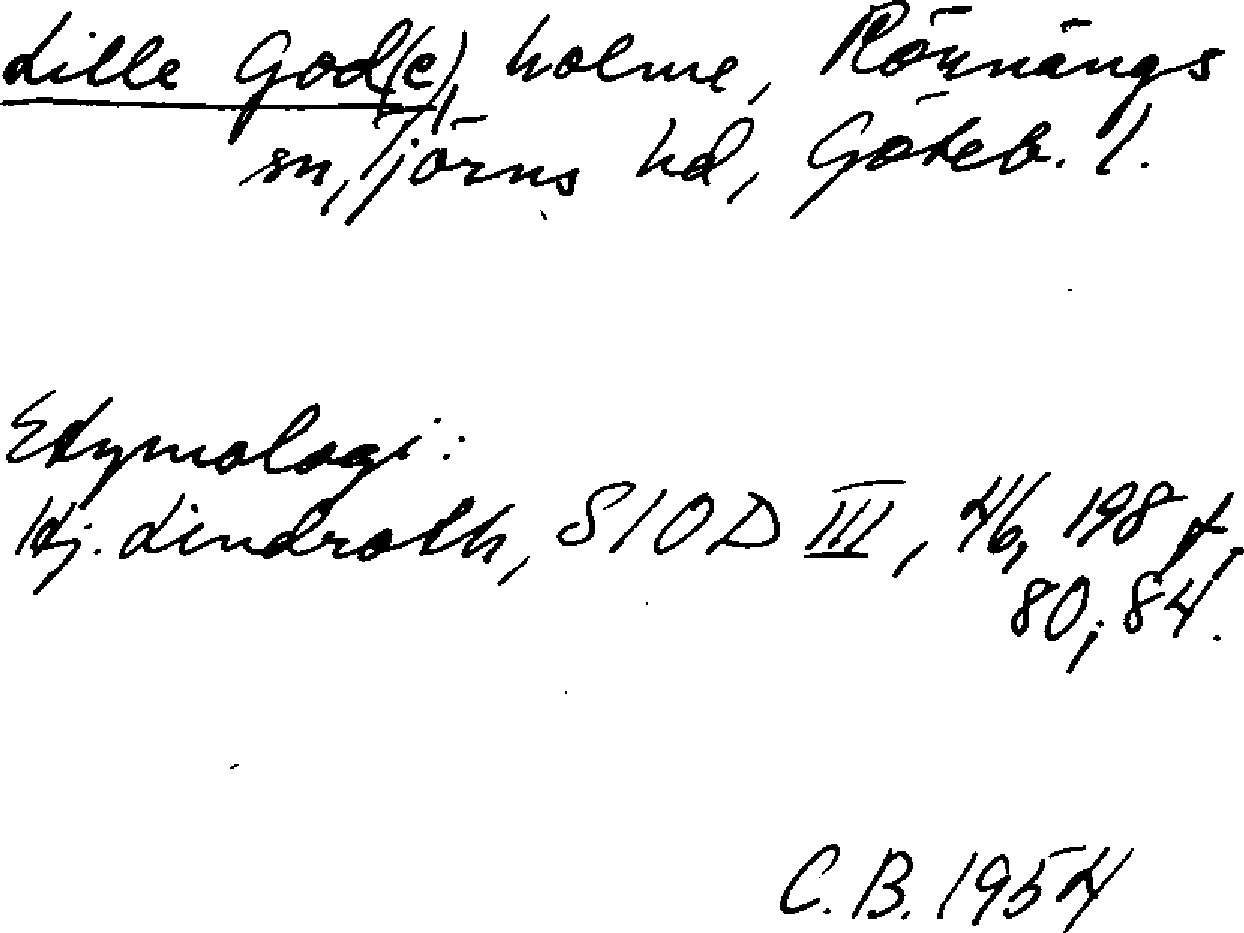 Lille God(e), holme, Rönnängs
sn, Tjörns hd, Göteb. l.
Etymologi:
Hj. Lindroth, SIOD III, 46, 198 f,
80; 84.
C.B. 1954